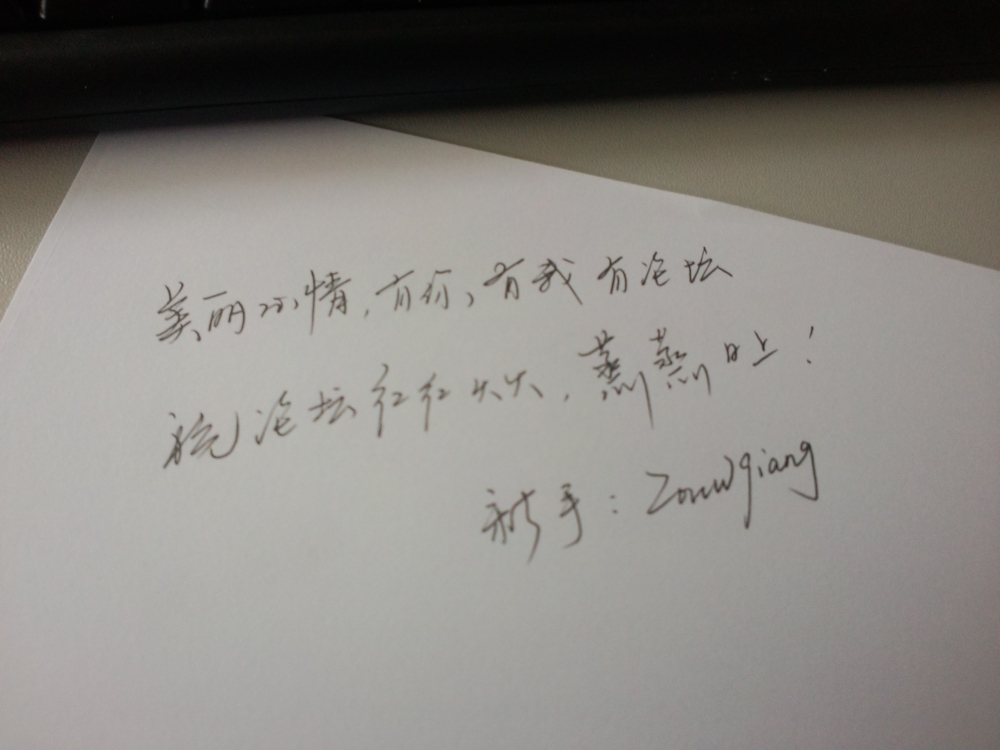 美丽心情,有你,有我有论坛
祝论坛红红火火,蒸蒸日上!
新手:Zouwqiang